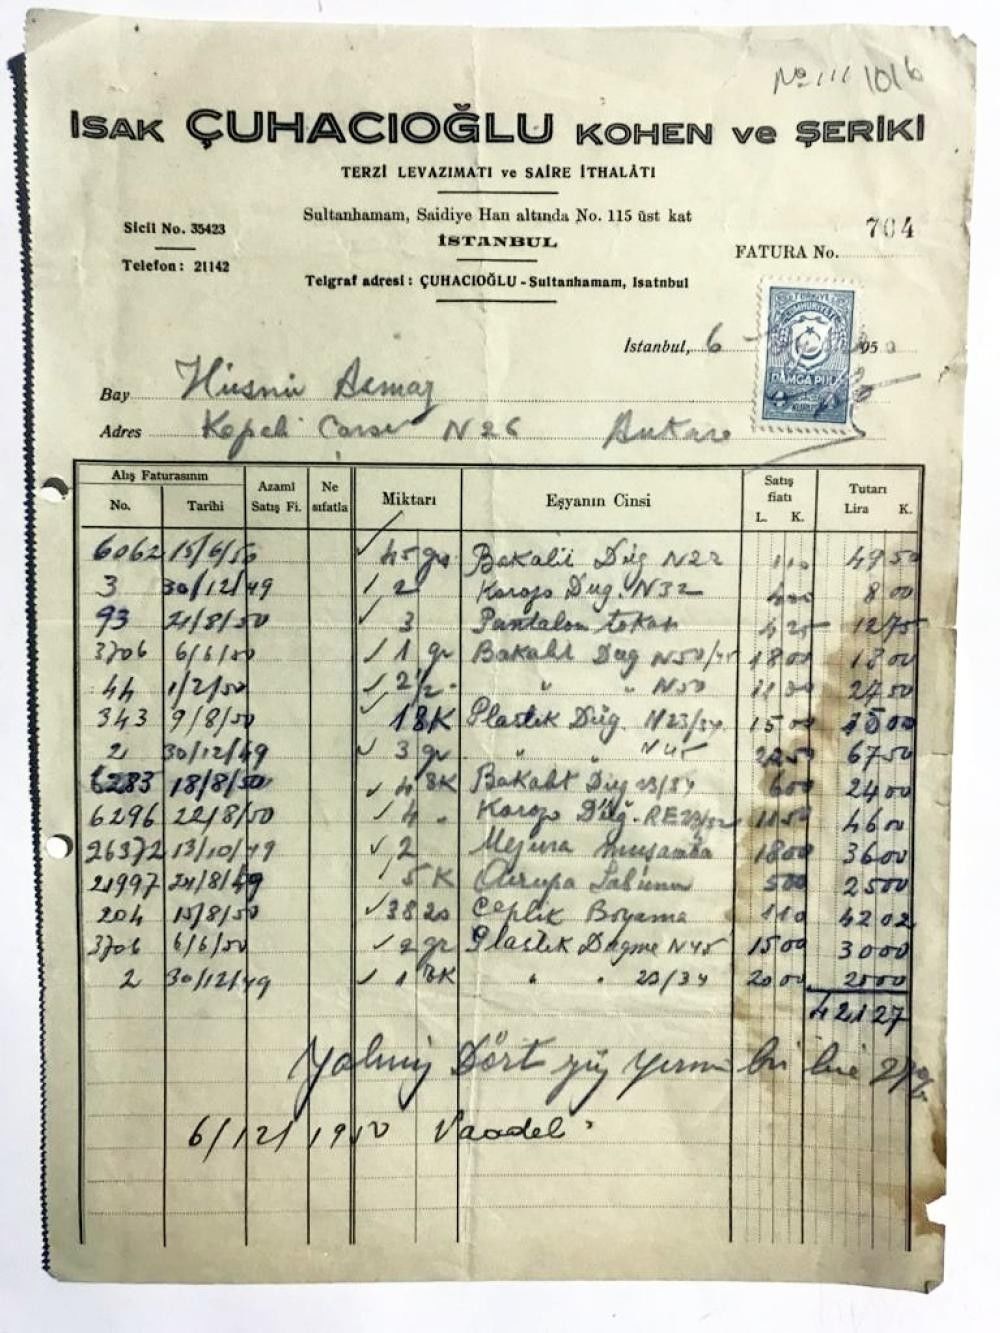 No 111 1016
İSAK ÇUHACIOĞLU KOHEN ve ŞERİKİ
TERZİ LEVAZIMATI ve SAİRE İTHALÂTI
Sultanhamam, Saidiye Han altında No. 115 üst kat
Sicil No. 35423
İSTANBUL
FATURA No. 704
Telefon: 21142
Telgraf adresi: ÇUHACIOĞLU - Sultanhamam, Isatnbul
TÜRKİYE CUMHURİYETİ
DAMGA PULU
KURUŞ
İstanbul, 6 950
Bay Hüsnü Asmaz
Adres Kepeli Çarsı N 26 Ankara
Alış Faturasının Azami Satış Fi. Ne sıfatla Miktarı Eşyanın Cinsi Satış fiatı Tutarı
No. Tarihi L. K. Lira K.
6062 15/6/50 45 gr Bakalit Düğ N22 110 49 50
3 30/12/49 2 Korozo Dug. N32 400 8 00
93 21/8/50 3 Pantalon tokası 425 12 75
3706 6/6/50 1 gr Bakalit Dug N50/45 18 00 18 00
44 1/2/50 2 1/2 " " N50 11 00 27 50
343 9/8/50 1 BK Plastik Düğ. N23/34 15 00 15 00
2 30/12/49 3 gr " " N45 22 50 67 50
6283 18/8/50 4 BK Bakalit Düğ 23/34 600 24 00
6296 22/8/50 4 " Korozo Düğ. RE23/32 11 50 46 00
26372 13/10/49 2 Mezura muşamba 18 00 36 00
21997 24/8/49 5 K Avrupa Sabunu 500 25 00
204 15/8/50 38 20 Ceplik Boyama 110 42 02
3706 6/6/50 2 gr Plastik Dugme N45 15 00 30 00
2 30/12/49 1 BK " " 23/34 20 00 20 00
421 27
Yalnız Dört yüz yirmi bir lira 27
6/12/1950 Vaadeli